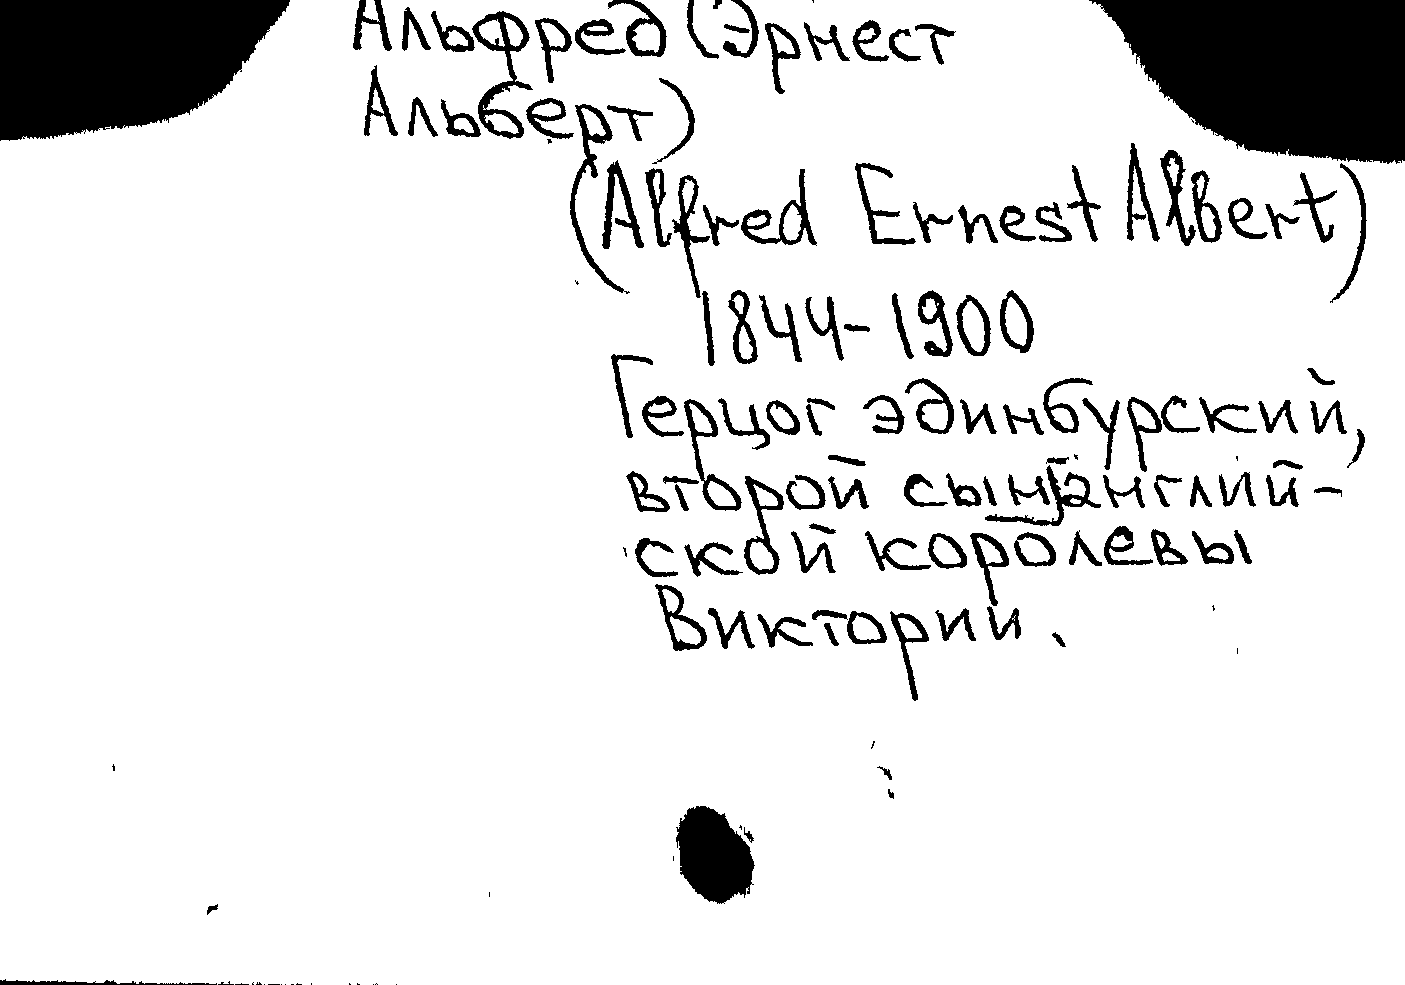 Альфред (Эрнест
Альберт)
(Alfred Ernest Albert)
1844-1900
Герцог эдинбурский,
второй сын англий-
ской королевы
Виктории.